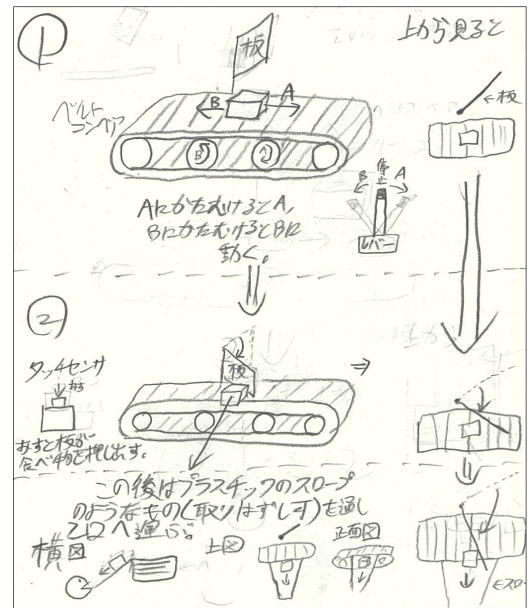 ①
板
上から見ると
ベルト
コンベア
B
A
←板
B
A
停止
B
A
レバー
Aにかたむけると A,
BにかたむけるとBに
動く。
②
タッチセンサ
押す
おすと板が
食べ物を押し出す。
板
この後はプラスチックのスロープ
のようなもの(取りはずし可)を通し
て口へ運ぶ。
横図
上図
正面図
←スロー